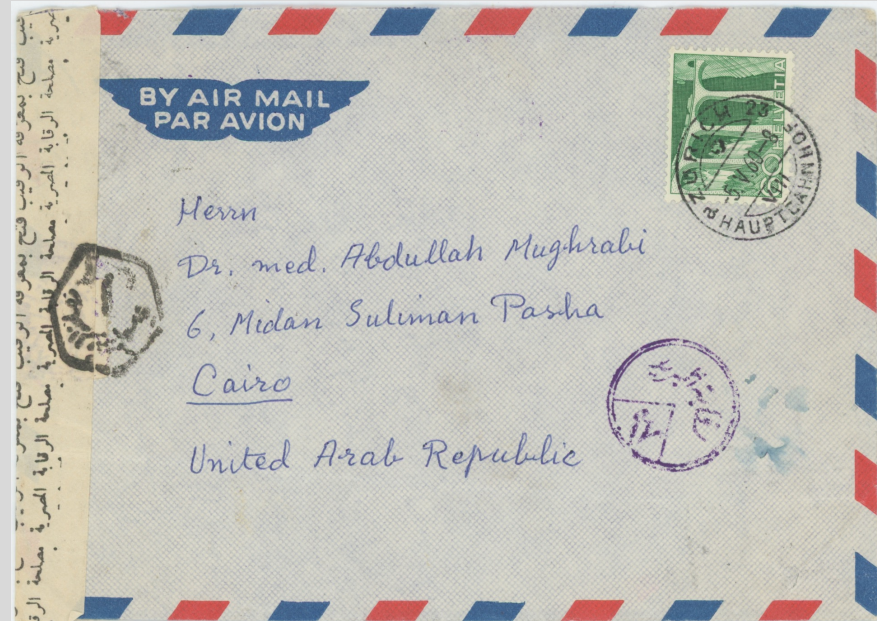 BY AIR MAIL
PAR AVION
HELVETIA
ZÜRICH 23
HAUPTBAHNHOF
Herrn
Dr. med. Abdullah Mughrabi
6, Midan Suliman Pasha
Cairo
United Arab Republic
فتح بمعرفة الرقيب
مصلحة الرقابة المصرية